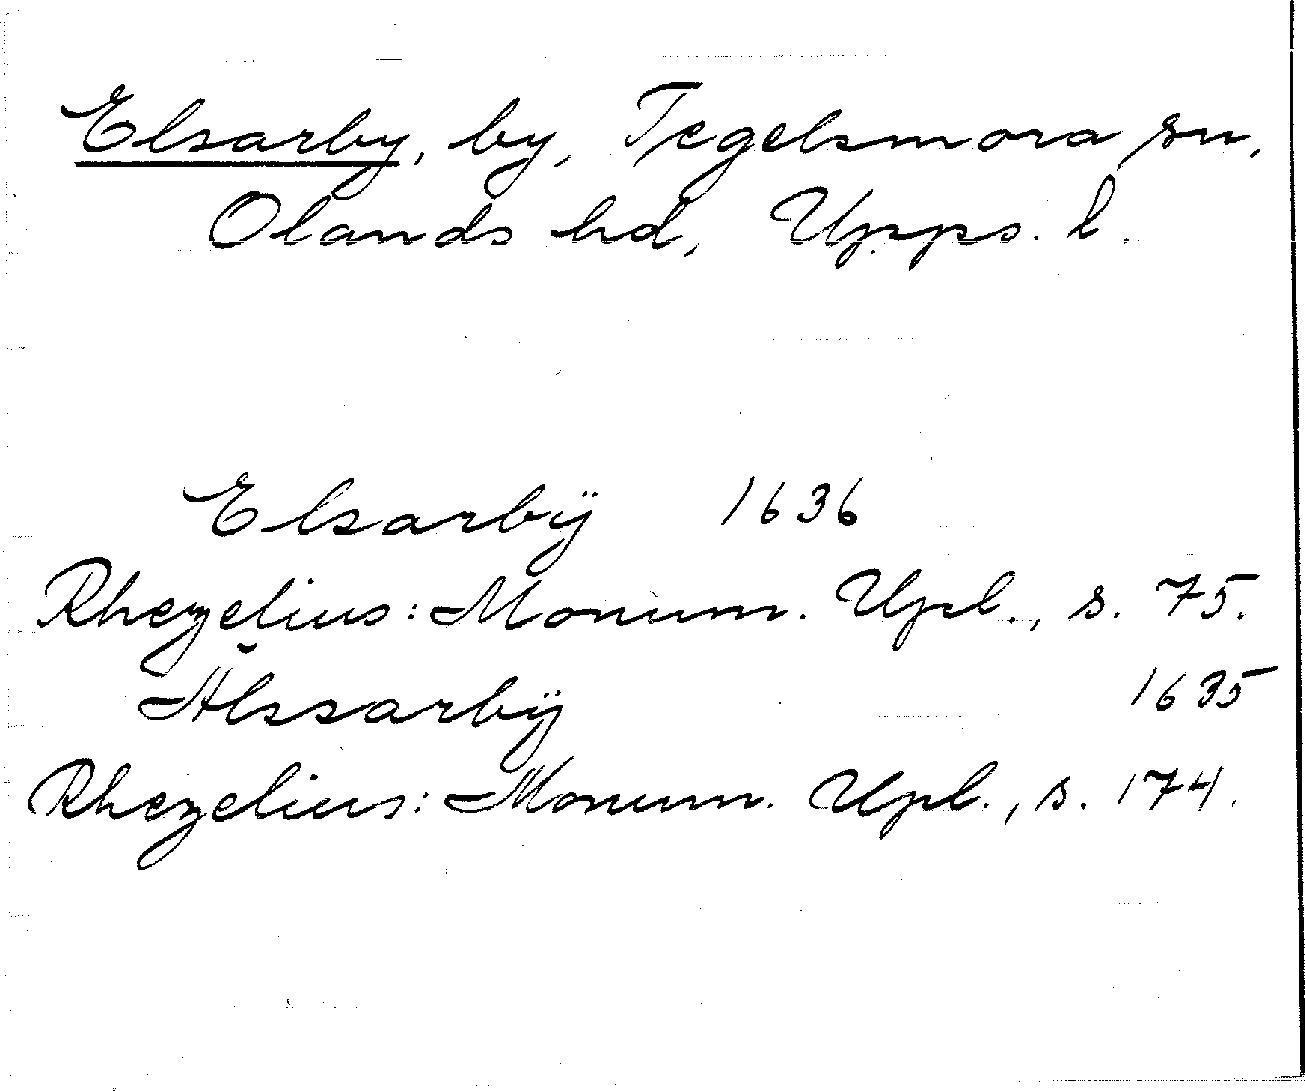 Elsarby, by, Tegelsmora sn,
Olands hd, Upps. l.
Elsarbÿ 1636
Rhezelius: Monum. Upl., s. 75.
Älssarbÿ 1635
Rhezelius: Monum. Upl., s. 174.